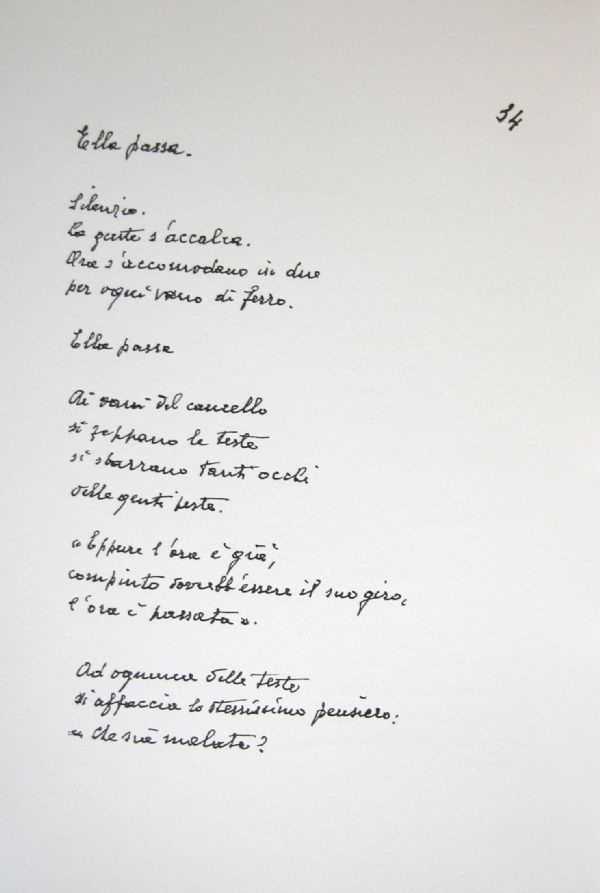 34
Ella passa.
Silenzio.
La gente s'accalca.
Ora s'accomodano in due
per ogni vano di ferro.
Ella passa
Ai vani del cancello
si zeppano le teste
si sbarrano tanti occhi
delle genti peste.
"Eppure l'ora è già,
compiuto dovrebb'essere il suo giro,
l'ora è passata".
Ad ognuna delle teste
si affaccia lo stessissimo pensiero:
« che sia malata?